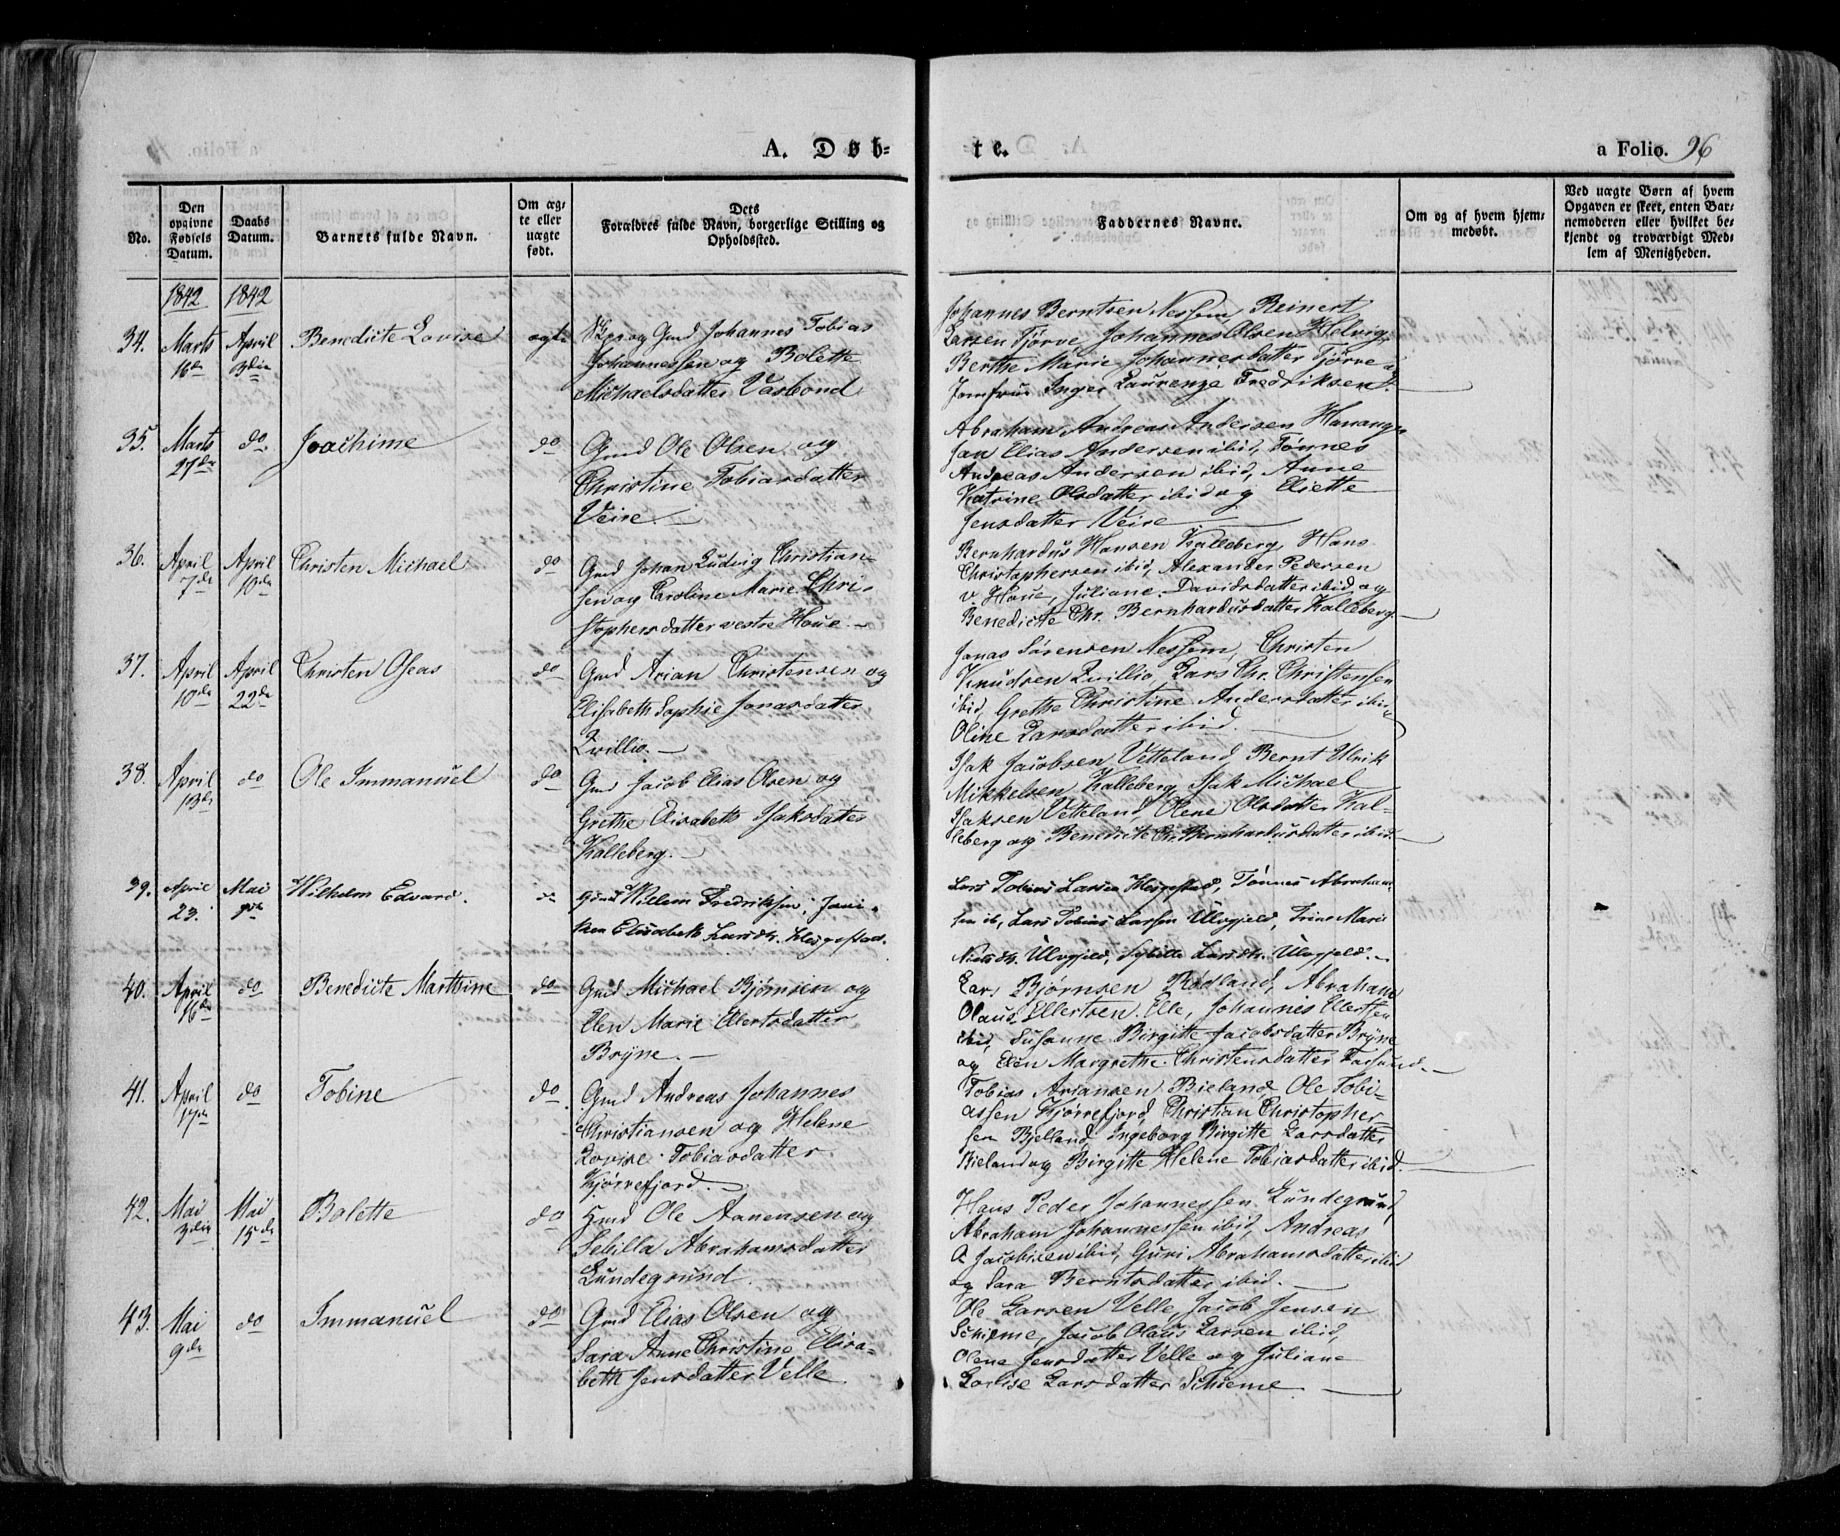 A. Døb-
te.
a Folio. 96
No.
Den opgivne Fødsels Datum.
Daabs Datum.
Barnets fulde Navn.
Om æg-te eller uægte født.
Dets Forældres fulde Navn, borgerlige Stilling og Opholdssted.
Faddernes Navne.
Om og af hvem hjem-medøbt.
Ved uægte Børn af hvem Opgaven er skeet, enten Bar-nemoderen eller hvilket be-kjendt og troværdigt Med-lem af Menigheden.
1842 1842
34. Marts 16de April 3die Benedicte Lovise ægte
og Gmd Johannes Tobias
Johannessen og Bolette
Michaelsdatter Vasbond
Johannes Berntsen Nessem, Reinert
Larsen Tjørve, Johannes Olsen Helvig,
Berthe Marie Johannesdatter Tjørve og
Jomfrue Inger Laurenze Fredriksen
35. Marts 27de do Joachime do
Gmd Ole Olsen og
Christine Tobiasdatter
Veire
Abraham Andreas Andersen Hananger
Jan Elias Andersen ibid, Tønnes
Andreas Andersen ibid, Anne
Katrine Olsdatter ibid og Eliette
Jensdatter Veire
36. April 7de April 10de Christen Michael do
Gmd Johan Ludvig Christian-
sen og Caroline Marie Chri-
stophersdatter vestre Houe.
Bernhardus Hansen Kalleberg, Hans
Christophersen ibid, Alexander Pedersen
v Houe, Juliane Davidsdatter ibid og
Benedicte Chr. Bernhardusdatter Kalleberg.
37. April 10de April 22de Christen Oseas do
Gmd Arian Christensen og
Elisabeth Sophie Jonasdatter
Qvillio.
Jonas Sørensen Nessem, Christen
Knudsen Qvillio, Lars Chr. Christensen
ibid, Grethe Christine Andersdatter ibid
Oline Larsdatter ibid.
38. April 13de do Ole Immanuel do
Gmd Jacob Elias Olsen og
Grethe Elisabeth Isaksdatter
Kalleberg.
Isak Jacobsen Vetteland, Bernt Ulrik
Mikkelsen Kalleberg, Isak Michael
Isaksen Vetteland, Olene Olsdatter Kal-
leberg og Benedicte Chr. Bernhardusdatter ibid.
39. April 23. Mai Wilhelm Edvard. do
Gmd Willem Fredriksen, Jani-
ken Elisabeth Larsdtr.
Lars Tobias Larsen Tønnes Abraham-
sen ib, Lars Tobias Larsen Ulvgjeld, Trine Marie
Nielsdtr. Ulvgjeld, Sybille Larsdtr. Ulvgjeld.
40. April 16de do Benedicte Marthine do
Gmd Michael Bjørnsen og
Elen Marie Ellertsdatter
Bryne.
Lars Bjørnsen Rødland, Abraham
Olaus Ellertsen Elle, Johannes Ellertsen
ibid, Susanne Birgitte Jacobsdatter Bryne
og Elen Margrethe Christensdatter Farsund.
41. April 17de do Tobine do
Gmd Andreas Johannes
Christiansen og Helene
Lovise Tobiasdatter
Kjørrefjord.
Tobias Ariansen Bieland, Ole Tobi-
assen Kjørrefjord, Christian Christopher-
sen Bjelland, Ingeborg Birgitte Larsdatter
Bieland og Birgitte Helene Tobiasdatter ibid.
42. Mai 3die Mai 15de Bolette do
Gmd Ole Aanensen og
Sebilla Abrahamsdatter
Lundegrund.
Hans Peder Johannessen Lundegrund,
Abraham Johannessen ibid, Andreas
A Jacobsen ibid, Guri Abrahamsdatter ibid
og Sara Berntsdatter ibid.
43. Mai 9de do Immanuel do
Gmd Elias Olsen og
Sara Anne Christine Elisa-
beth Jensdatter Velle
Ole Larsen Velle, Jacob Jensen
Schieme, Jacob Olaus Larsen ibid,
Olene Jensdatter Velle og Juliane
Lovise Larsdatter Schieme.